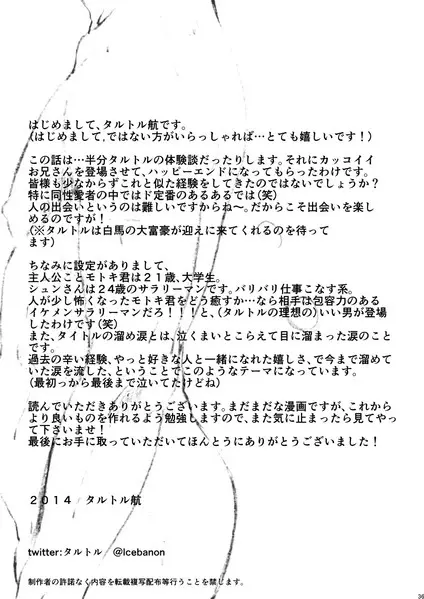 はじめまして、タルトル航です。
(はじめまして、ではない方がいらっしゃれば…とても嬉しいです！)
この話は…半分タルトルの体験談だったりします。それにカッコイイ
お兄さんを登場させて、ハッピーエンドになってもらったわけです。
皆様も少なからずこれと似た経験をしてきたのではないでしょうか？
特に同性愛者の中ではド定番のあるあるでは(笑)
人の出会いというのは難しいですからね～。だからこそ出会いを楽し
めるのですが！
(※タルトルは白馬の大富豪が迎えに来てくれるのを待って
ます)
ちなみに設定がありまして、
主人公ことモトキ君は２１歳、大学生。
シュンさんは２４歳のサラリーマンです。バリバリ仕事こなす系。
人が少し怖くなったモトキ君をどう癒すか…なら相手は包容力のある
イケメンサラリーマンだろ！！！と、(タルトルの理想の)いい男が登場
したわけです(笑)
また、タイトルの溜め涙とは、泣くまいとこらえて目に溜まった涙のこと
です。
過去の辛い経験、やっと好きな人と一緒になれた嬉しさ、で今まで溜めて
いた涙を流した、ということでこのようなテーマになっています。
(最初っから最後まで泣いてたけどね)
読んでいただきありがとうございます。まだまだな漫画ですが、これから
より良いものを作れるよう勉強しますので、また気に止まったら見てやっ
て下さいませ！
最後にお手に取っていただいてほんとうにありがとうございました！
２０１４　タルトル航
twitter:タルトル　@Icebanon
制作者の許諾なく内容を転載複写配布等行うことを禁じます。
36